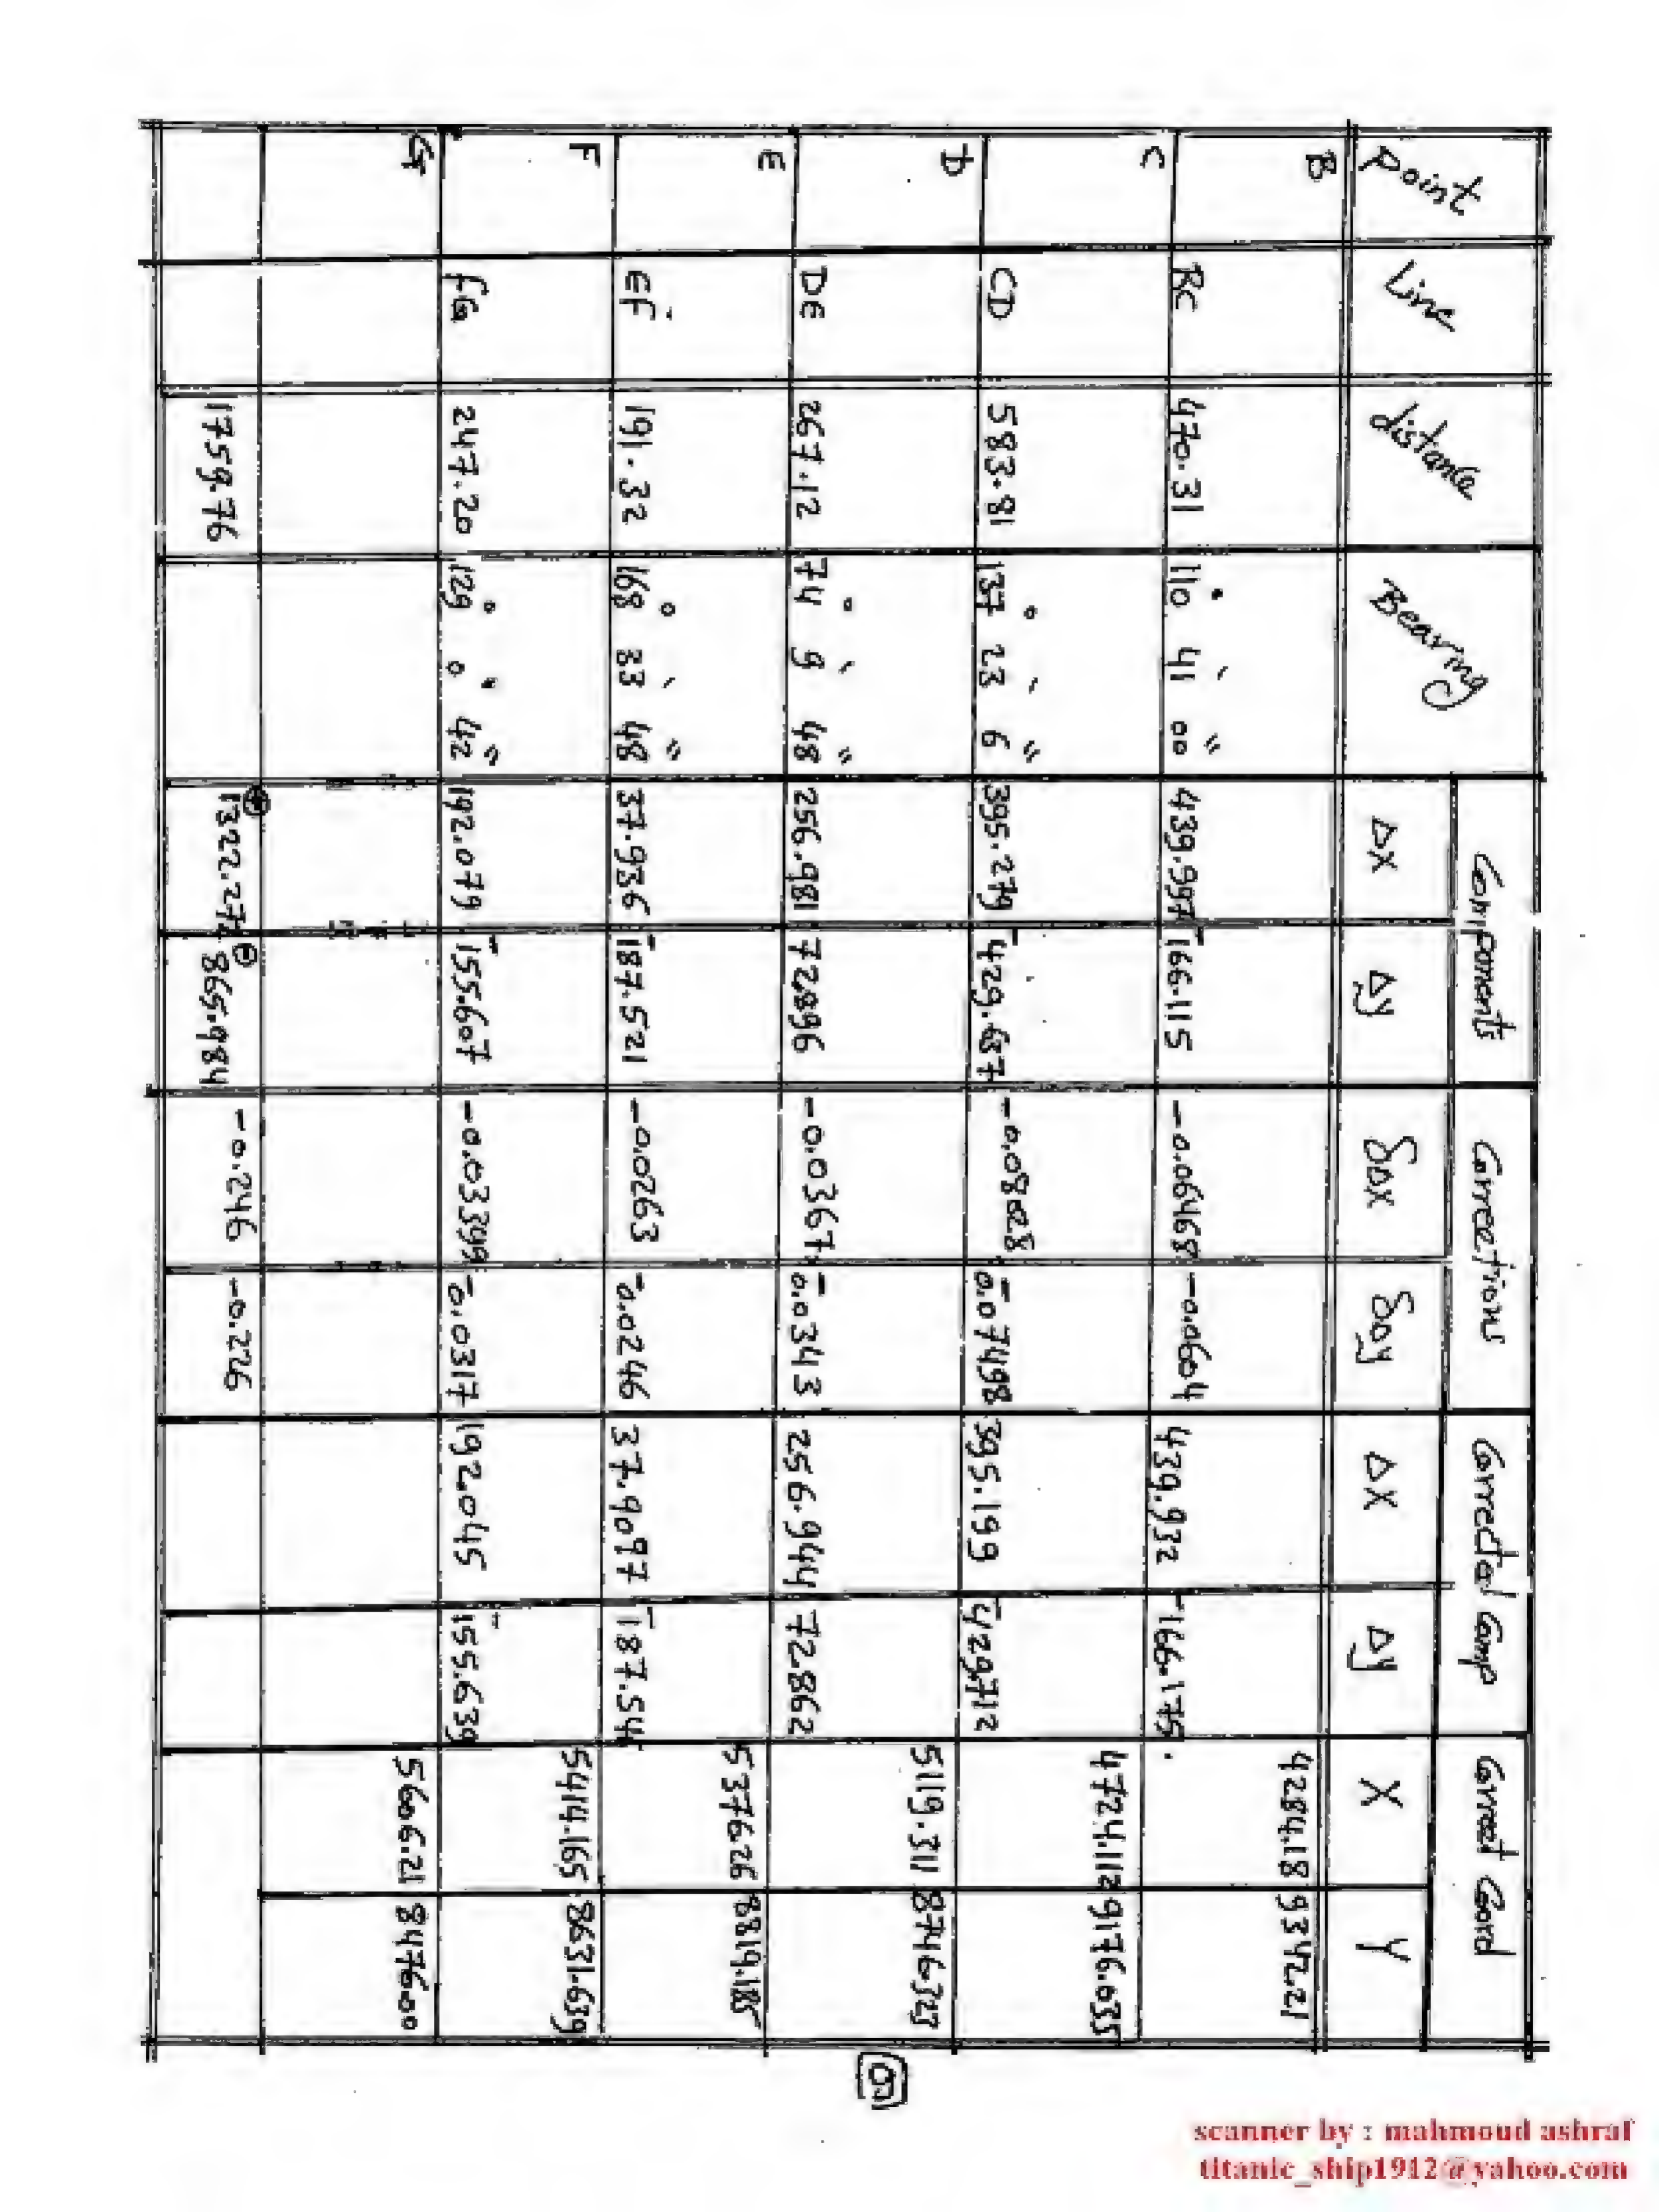 Point Line distance Bearing Components Corrections Corrected Comp Correct Cord
ΔX Δy δΔx δΔy ΔX Δy X Y
B 4284.18 9342.21
BC 470.31 110° 41' 00" 439.997 -166.115 -0.06468 -0.0604 439.932 -166.175
C 4724.112 9176.035
CD 583.81 137° 23' 6" 395.279 -429.637 -0.08028 -0.07498 395.199 -429.712
D 5119.311 8746.323
DE 267.12 74° 9' 48" 256.981 72.896 -0.0367 -0.0343 256.944 72.862
E 5376.26 8819.185
EF 191.32 168° 33' 48" 37.936 -187.521 -0.0263 -0.0246 37.9097 -187.54
F 5414.165 8631.639
FG 247.20 129° 0' 42" 192.079 -155.607 -0.03399 -0.0317 192.045 -155.639
G 5606.21 8476.00
1759.76 ⊕ 1322.272 ⊖ 865.984 -0.246 -0.226
6
scanner by : mahmoud ashraf
titanic_ship1912@yahoo.com